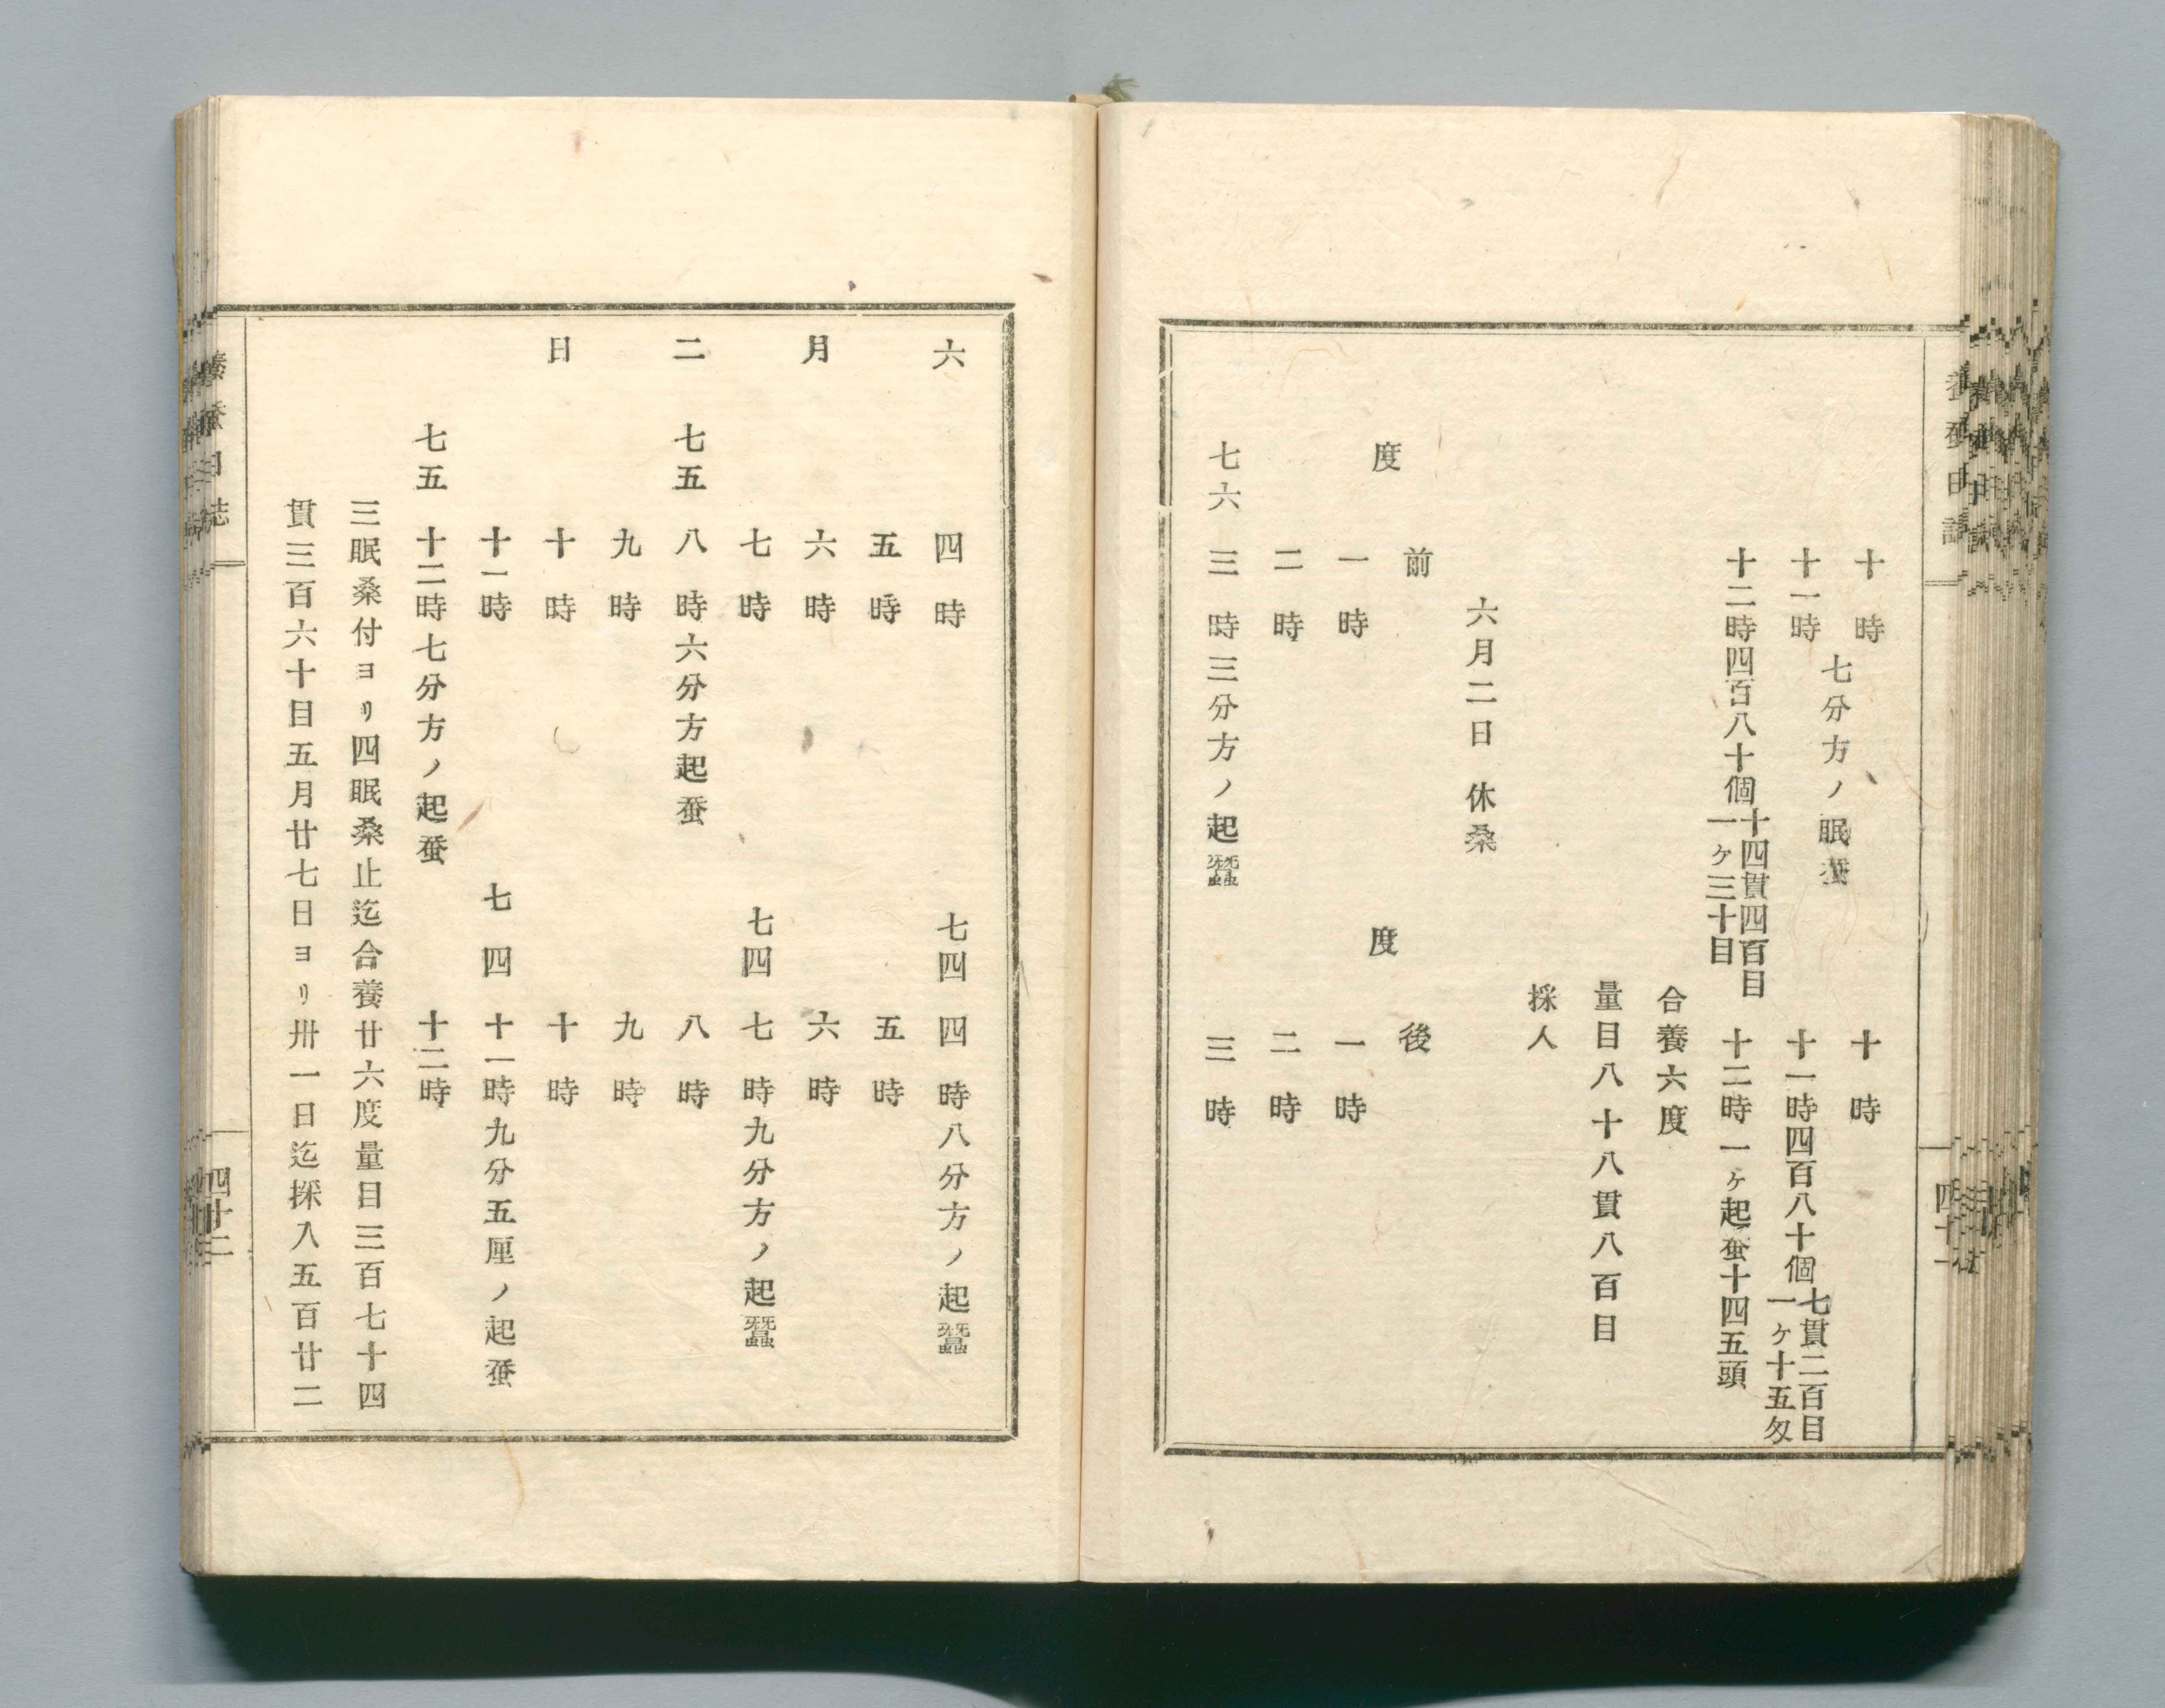 十時　十時
十一時　七分方ノ眠蚕　十一時四百八十個七貫二百目一ヶ十五匁
十二時四百八十個十四貫四百目一ヶ三十目　十二時一ヶ起蚕十四五頭
合養六度
量目八十八貫八百目
採人
六月二日　休桑
度　前　度　後
一時　一時
二時　二時
七六　三時三分方ノ起蠶　三時
四十一
六月二日
四時　七四　四時八分方ノ起蠶
五時　五時
六時　六時
七時　七四　七時九分方ノ起蠶
七五　八時六分方起蚕　八時
九時　九時
十時　十時
十一時　七四　十一時九分五厘ノ起蚕
七五　十二時七分方ノ起蚕　十二時
三眠桑付ヨリ四眠桑止迄合養廿六度量目三百七十四
貫三百六十目五月廿七日ヨリ卅一日迄採人五百廿二
四十二